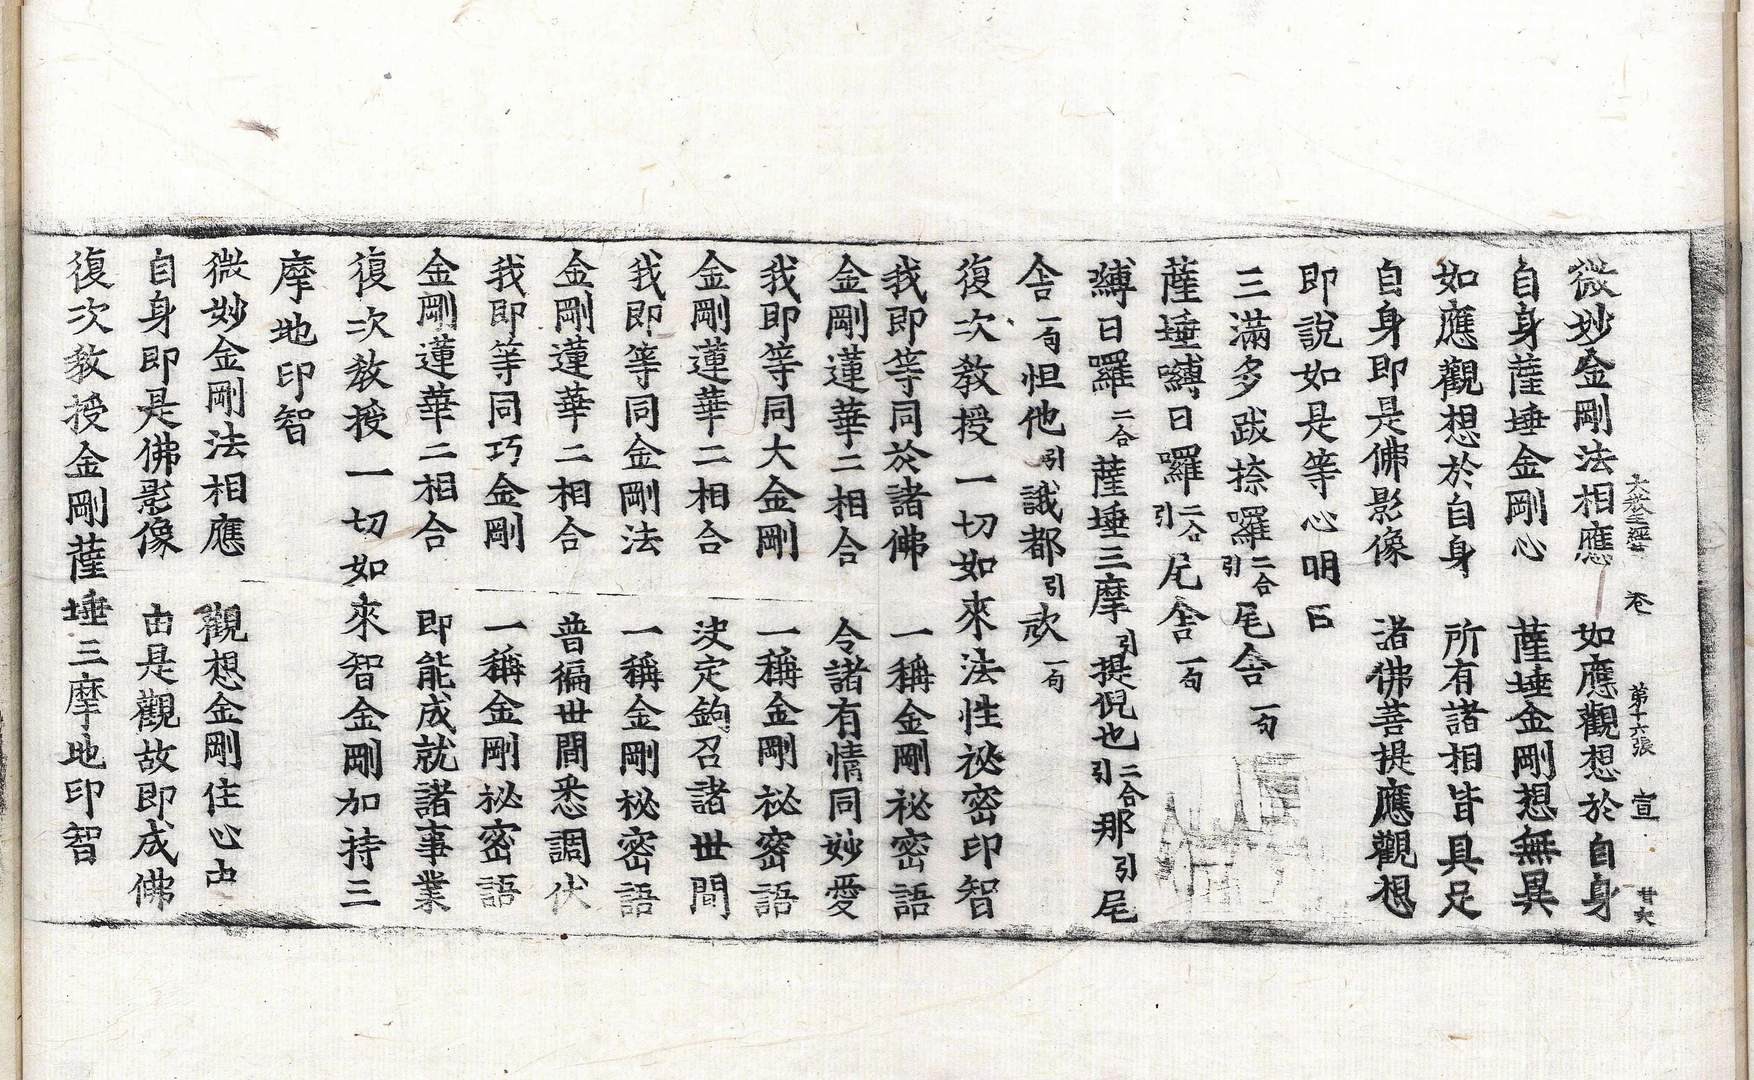 大教王經 卷 第十六張 宣 廿六
微妙金剛法相應 如應觀想於自身
自身薩埵金剛心 薩埵金剛想無異
如應觀想於自身 所有諸相皆具足
自身即是佛影像 諸佛菩提應觀想
即說如是等心明曰
三滿多跋捺囉二合引尾舍一句
薩埵嚩日囉二合引尾舍一句
嚩日囉二合薩埵三摩引提倪也二合引那引尾
舍一句怛他引誐都引欬一句
復次教授一切如來法性祕密印智
我即等同於諸佛 一稱金剛祕密語
金剛蓮華二相合 令諸有情同妙愛
我即等同大金剛 一稱金剛祕密語
金剛蓮華二相合 決定鉤召諸世間
我即等同金剛法 一稱金剛祕密語
金剛蓮華二相合 普徧世間悉調伏
我即等同巧金剛 一稱金剛祕密語
金剛蓮華二相合 即能成就諸事業
復次教授一切如來智金剛加持三
摩地印智
微妙金剛法相應 觀想金剛住心中
自身即是佛影像 由是觀故即成佛
復次教授金剛薩埵三摩地印智